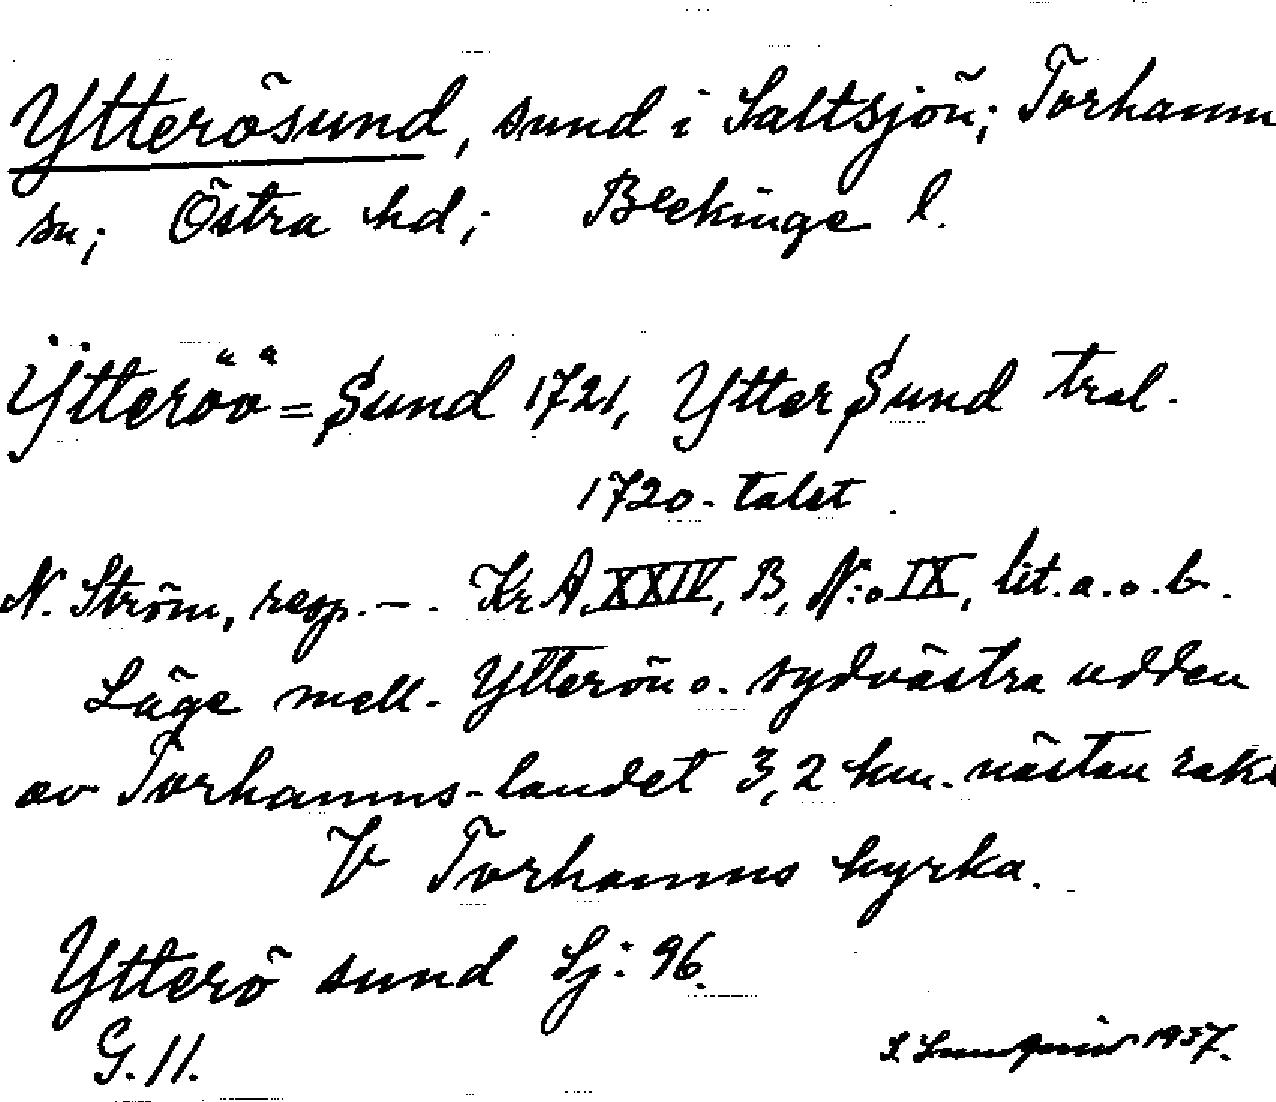 Ytterösund, sund i Saltsjön; Torhamns
sn; Östra hd; Blekinge l.
Ÿtteröö = Sund 1721, Ytter Sund tral.
1720-talet.
N. Ström, resp. -. KrA, XXIV, B, N:o IX, lit. a. o. b.
Läge mell. Ytterön o. sydvästra udden
av Torhamns-landet 3,2 km. nästan rakt
V Torhamns kyrka.
Ytterö sund Sj: 96.
G. 11.
I. Lundquist 1937.